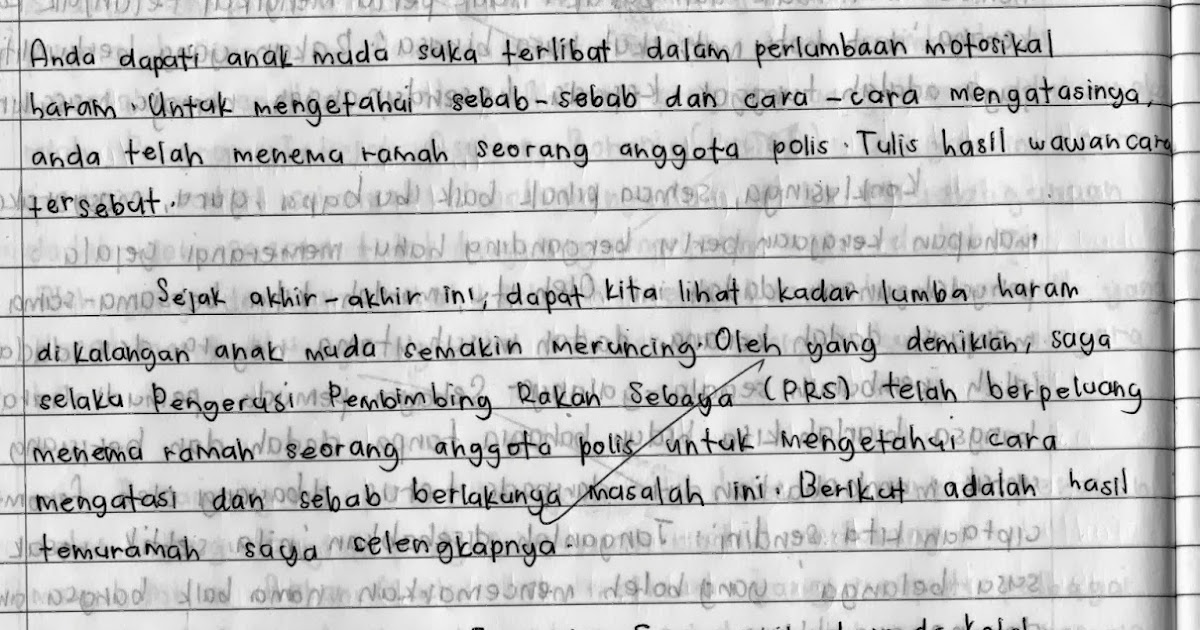 Anda dapati anak muda suka terlibat dalam perlumbaan motosikal
haram. Untuk mengetahui sebab-sebab dan cara-cara mengatasinya,
anda telah menema ramah seorang anggota polis. Tulis hasil wawancara
tersebut.
Sejak akhir-akhir ini, dapat kita lihat kadar lumba haram
di kalangan anak muda semakin meruncing. Oleh yang demikian, saya
selaku Pengerusi Pembimbing Rakan Sebaya (PRS) telah berpeluang
menema ramah seorang anggota polis untuk mengetahui cara
mengatasi dan sebab berlakunya masalah ini. Berikut adalah hasil
temuramah saya selengkapnya.